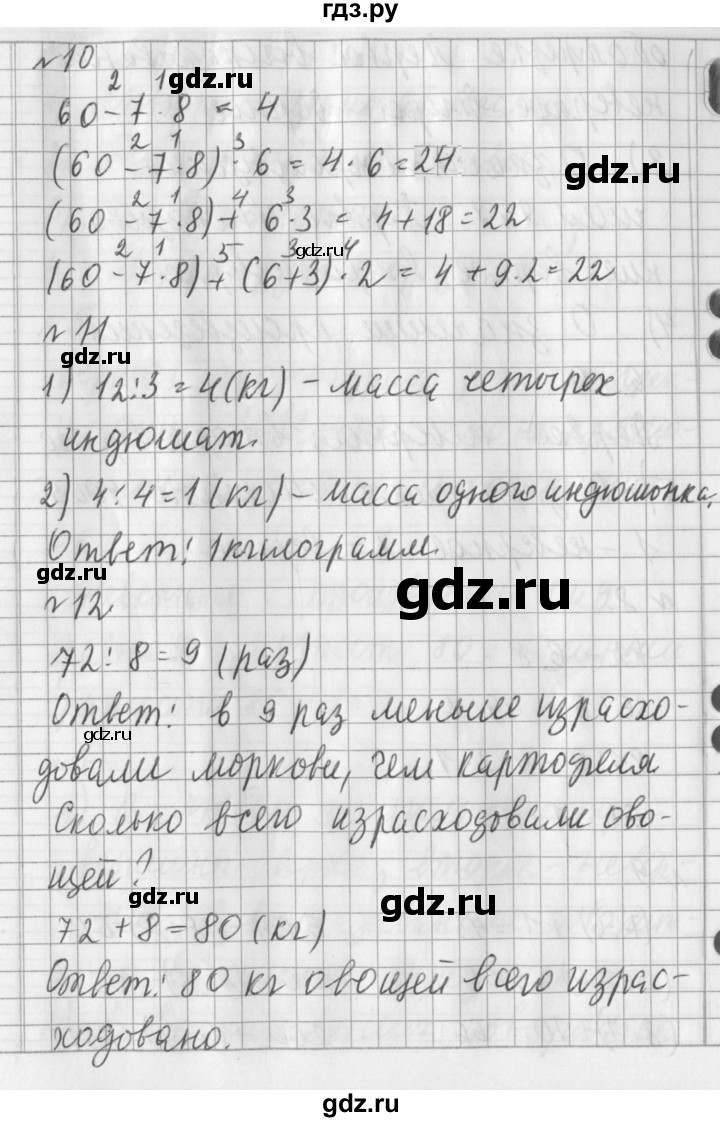 гдз.ру
№10
2 1
60 - 7 · 8 = 4
gdz.ru
2 1 3
(60 - 7 · 8) · 6 = 4 · 6 = 24
gdz.ru
2 1 4 3
(60 - 7 · 8) + 6 · 3 = 4 + 18 = 22
2 1 5 3 4
gdz.ru
(60 - 7 · 8) + (6 + 3) · 2 = 4 + 9 · 2 = 22
№11
gdz.ru
1) 12 : 3 = 4 (кг) - масса четырех
индюшат.
2) 4 : 4 = 1 (кг) - масса одного индюшонка.
Ответ: 1 килограмм.
gdz.ru
gdz.ru
№12
72 : 8 = 9 (раз)
Ответ: в 9 раз меньше израсхо-
gdz.ru
довали моркови, чем картофеля
Сколько всего израсходовали ово-
щей?
gdz.ru
gdz.ru
72 + 8 = 80 (кг)
Ответ: 80 кг овощей всего израс-
ходовано.
gdz.ru